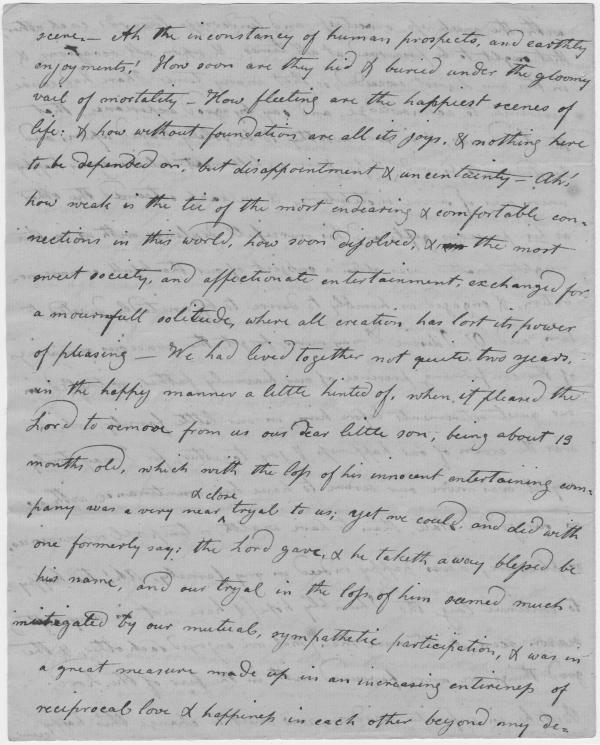 scene. — Ah the inconstancy of human prospects, and earthly
enjoyments! How soon are they hid & buried under the gloomy
vail of mortality — How fleeting are the happiest scenes of
life: & how without foundation are all its joys, & nothing here
to be depended on, but disappointment & uncertainty — Ah!
how weak is the tie of the most endearing & comfortable con=
nections in this world, how soon disolved, & the most
sweet society, and affectionate entertainment, exchanged for
a mournfull solitude, where all creation has lost its power
of pleasing — We had lived together not quite two years.
in the happy manner a little hinted of, when it pleased the
Lord to remove from us our dear little son, being about 13
months old, which with the loss of his innocent entertaining com=
& close
pany was a very near tryal to us; yet we could and did with
one formerly say; the Lord gave, & he taketh away blessed be
his name, and our tryal in the loss of him seemed much
mitigated by our mutual, sympathetic participation, & was in
a great measure made up in an increasing entireness of
reciprocal love & happiness in each other beyond my de=